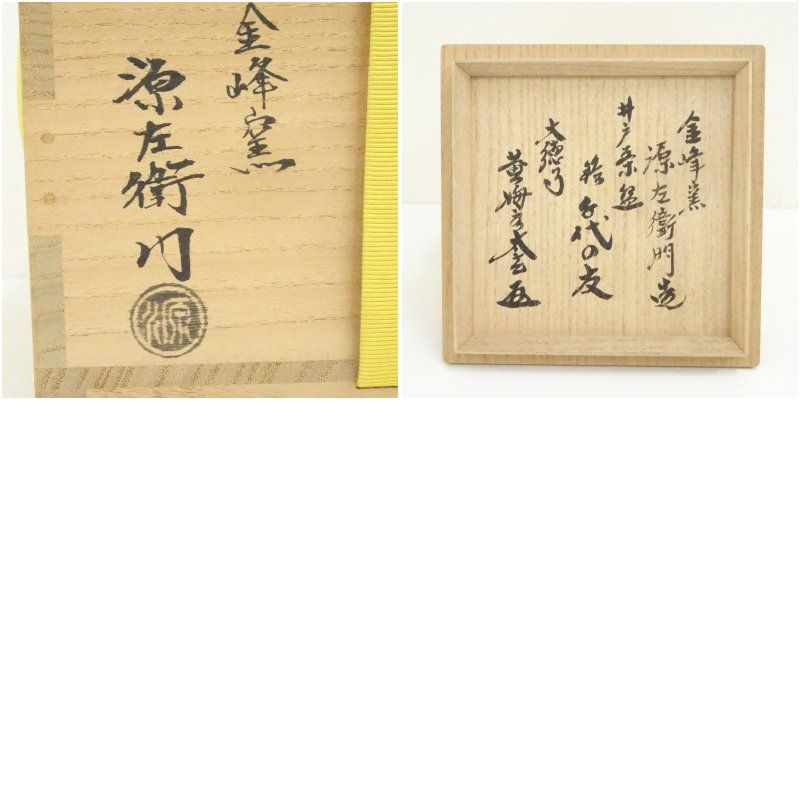 金峰窯
源左衛門
源
金峰窯
源左衛門造
井戸茶盌
銘 千代の友
大徳寺
黄梅高太玄